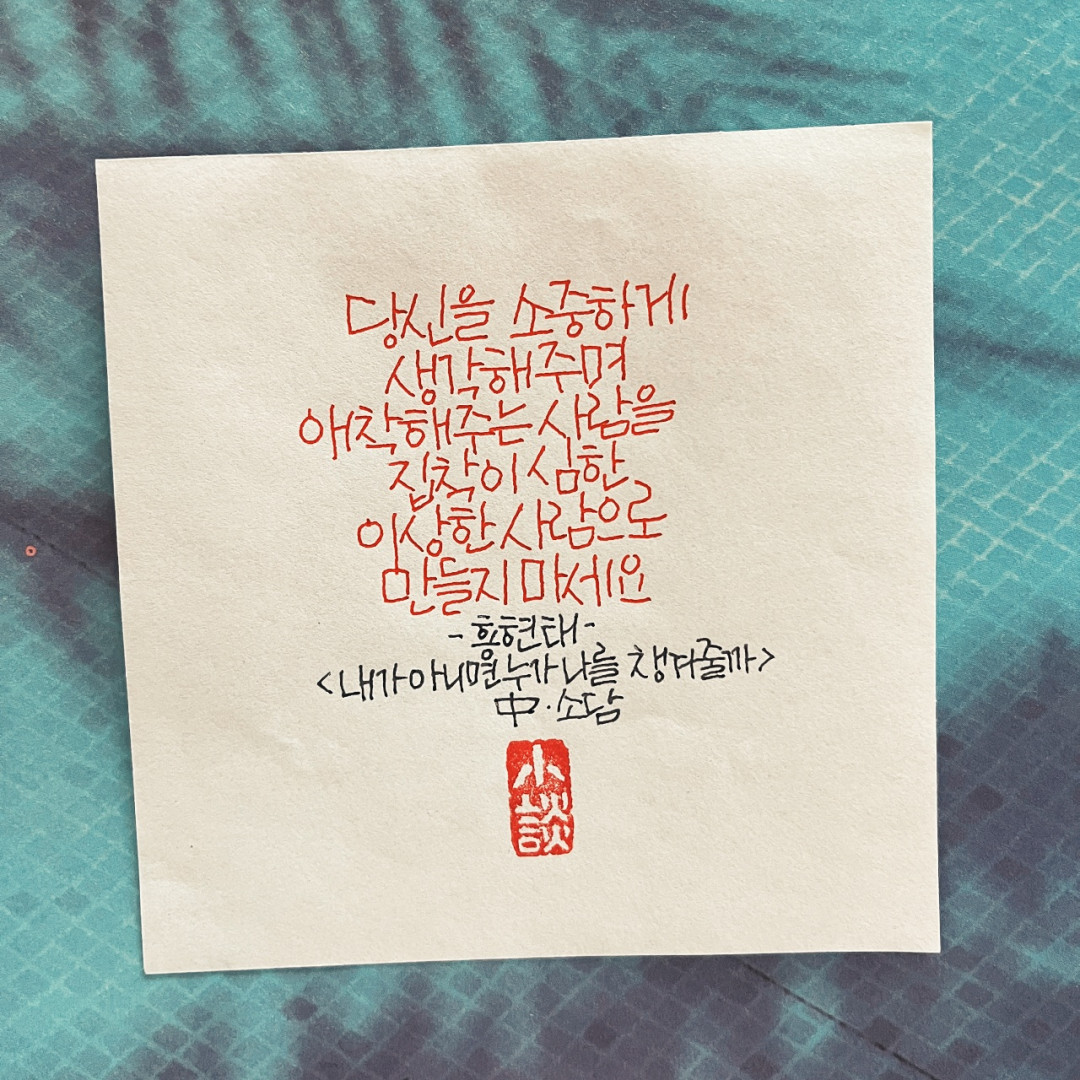 당신을 소중하게
생각해주며
애착해주는 사람을
집착이 심한
이상한 사람으로
만들지 마세요
-홍현태-
<내가 아니면 누가 나를 챙겨줄까>
中·소담
小談